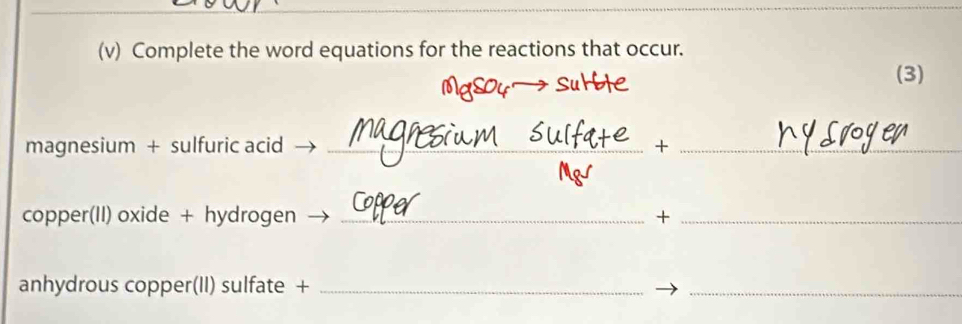 (v) Complete the word equations for the reactions that occur.
(3)
MgSO4 → sulfate
magnesium + sulfuric acid → magnesium sulfate + hydrogen
copper(II) oxide + hydrogen → Copper +
anhydrous copper(II) sulfate + →